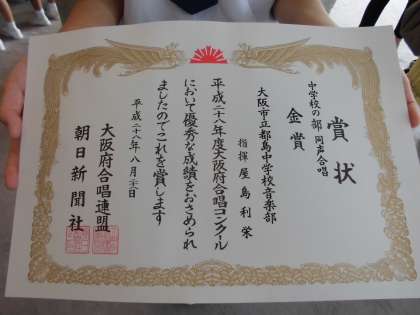 賞状
中学校の部 同声合唱
金賞
大阪市立都島中学校音楽部
指揮 屋島利栄
平成二十八年度大阪府合唱コンクール
において優秀な成績をおさめられ
ましたのでこれを賞します
大阪府合唱連盟
朝日新聞社